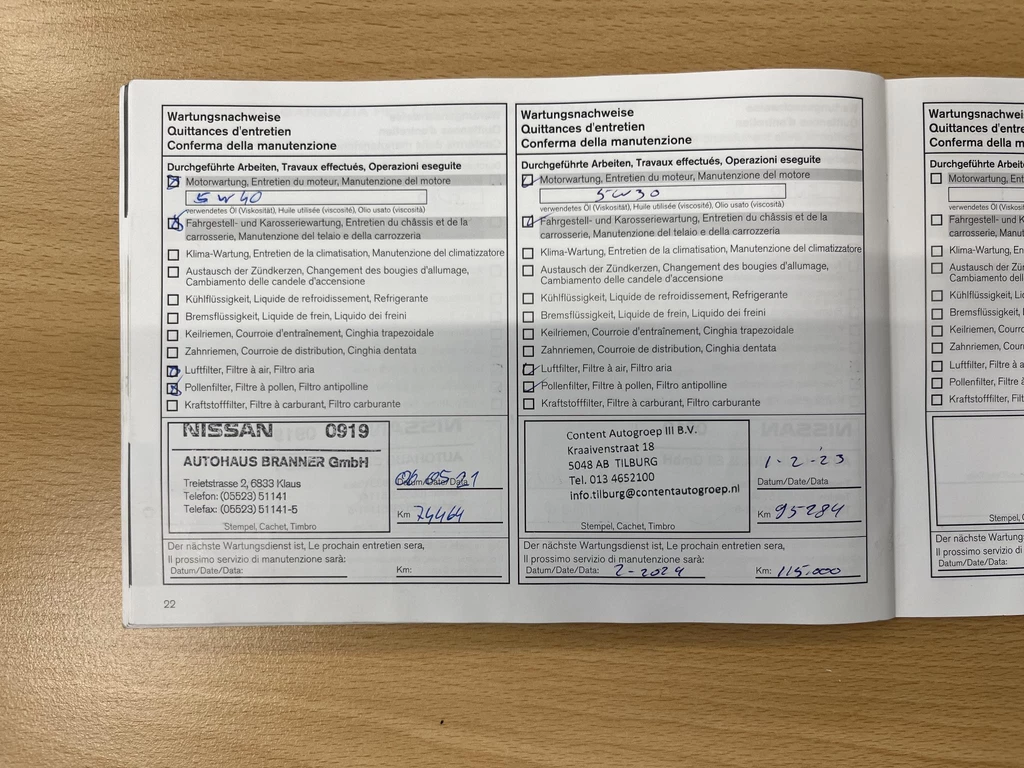 Wartungsnachweise
Quittances d'entretien
Conferma della manutenzione
Durchgeführte Arbeiten, Travaux effectués, Operazioni eseguite
Motorwartung, Entretien du moteur, Manutenzione del motore
5W40
verwendetes Öl (Viskosität), Huile utilisée (viscosité), Olio usato (viscosità)
Fahrgestell- und Karosseriewartung, Entretien du châssis et de la
carrosserie, Manutenzione del telaio e della carrozzeria
Klima-Wartung, Entretien de la climatisation, Manutenzione del climatizzatore
Austausch der Zündkerzen, Changement des bougies d'allumage,
Cambiamento delle candele d'accensione
Kühlflüssigkeit, Liquide de refroidissement, Refrigerante
Bremsflüssigkeit, Liquide de frein, Liquido dei freini
Keilriemen, Courroie d'entraînement, Cinghia trapezoidale
Zahnriemen, Courroie de distribution, Cinghia dentata
Luftfilter, Filtre à air, Filtro aria
Pollenfilter, Filtre à pollen, Filtro antipolline
Kraftstofffilter, Filtre à carburant, Filtro carburante
NISSAN 0919
AUTOHAUS BRANNER GmbH
Treietstrasse 2, 6833 Klaus
Telefon: (05523) 51141
Telefax: (05523) 51141-5
Stempel, Cachet, Timbro
06.05.21
Datum/Date/Data
Km 74464
Der nächste Wartungsdienst ist, Le prochain entretien sera,
Il prossimo servizio di manutenzione sarà:
Datum/Date/Data: Km:
22
Wartungsnachweise
Quittances d'entretien
Conferma della manutenzione
Durchgeführte Arbeiten, Travaux effectués, Operazioni eseguite
Motorwartung, Entretien du moteur, Manutenzione del motore
5W30
verwendetes Öl (Viskosität), Huile utilisée (viscosité), Olio usato (viscosità)
Fahrgestell- und Karosseriewartung, Entretien du châssis et de la
carrosserie, Manutenzione del telaio e della carrozzeria
Klima-Wartung, Entretien de la climatisation, Manutenzione del climatizzatore
Austausch der Zündkerzen, Changement des bougies d'allumage,
Cambiamento delle candele d'accensione
Kühlflüssigkeit, Liquide de refroidissement, Refrigerante
Bremsflüssigkeit, Liquide de frein, Liquido dei freini
Keilriemen, Courroie d'entraînement, Cinghia trapezoidale
Zahnriemen, Courroie de distribution, Cinghia dentata
Luftfilter, Filtre à air, Filtro aria
Pollenfilter, Filtre à pollen, Filtro antipolline
Kraftstofffilter, Filtre à carburant, Filtro carburante
Content Autogroep III B.V.
Kraaivenstraat 18
5048 AB TILBURG
Tel. 013 4652100
info.tilburg@contentautogroep.nl
Stempel, Cachet, Timbro
1-2-'23
Datum/Date/Data
Km 95284
Der nächste Wartungsdienst ist, Le prochain entretien sera,
Il prossimo servizio di manutenzione sarà:
Datum/Date/Data: 2-2024 Km: 115.000
Wartungsnachwei
Quittances d'entre
Conferma della m
Durchgeführte Arbeite
Motorwartung, Ent
verwendetes Öl (Viskosit
Fahrgestell- und Ka
carrosserie, Manut
Klima-Wartung, Ent
Austausch der Zünd
Cambiamento delle
Kühlflüssigkeit, Liqu
Bremsflüssigkeit, Li
Keilriemen, Courroie
Zahnriemen, Courro
Luftfilter, Filtre à air
Pollenfilter, Filtre à
Kraftstofffilter, Filtre
Stempel, C
Der nächste Wartung
Il prossimo servizio di
Datum/Date/Data: